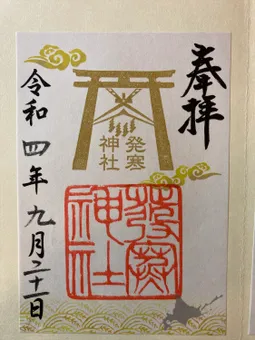 奉拝
発寒
神社
發寒
神社
令和四年九月二十一日